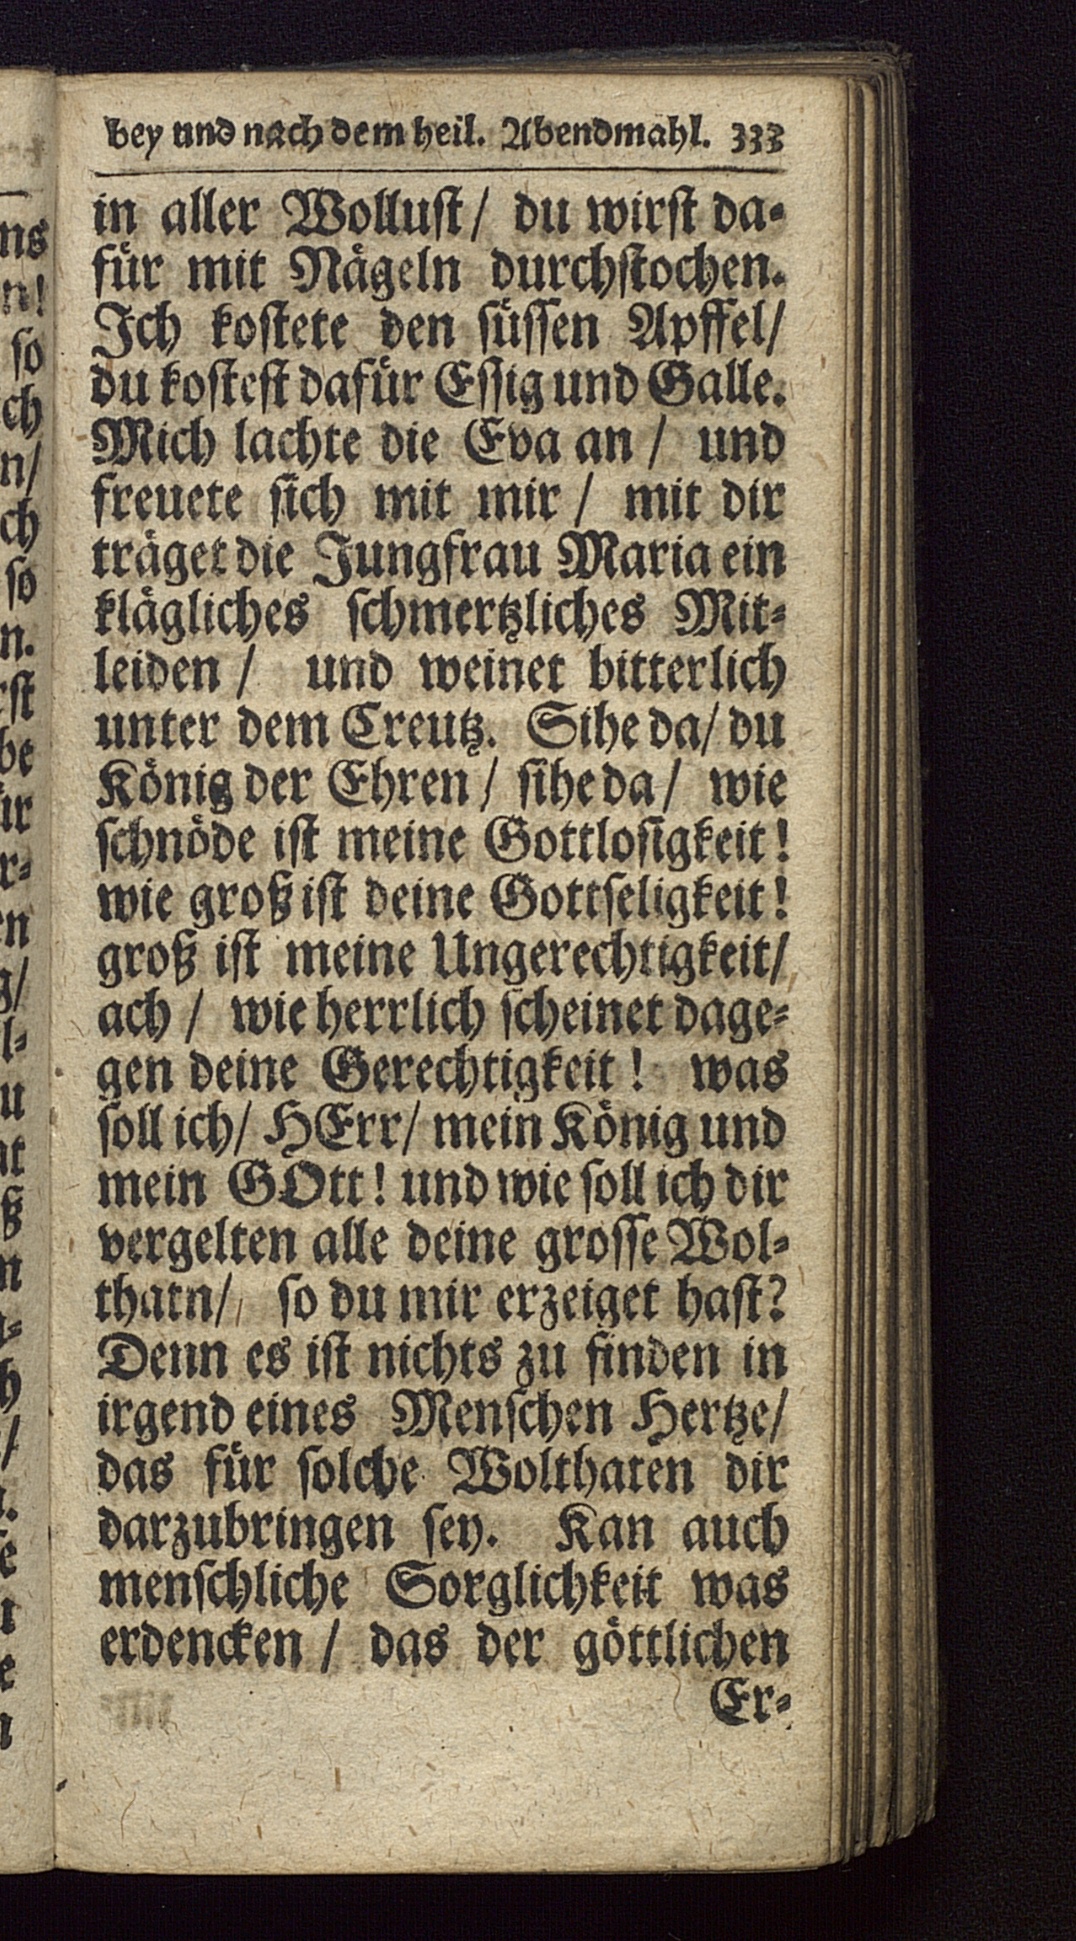 bey und nach dem heil. Abendmahl. 333
in aller Wollust/ du wirst da-
für mit Nägeln durchstochen.
Ich kostete den süssen Apffel/
du kostest dafür Essig und Galle.
Mich lachte die Eva an / und
freuete sich mit mir / mit dir
träget die Jungfrau Maria ein
klägliches schmertzliches Mit-
leiden / und weinet bitterlich
unter dem Creutz. Sihe da/ du
König der Ehren / sihe da / wie
schnöde ist meine Gottlosigkeit!
wie groß ist deine Gottseligkeit!
groß ist meine Ungerechtigkeit/
ach / wie herrlich scheinet dage-
gen deine Gerechtigkeit! was
soll ich/ HErr/ mein König und
mein GOtt! und wie soll ich dir
vergelten alle deine grosse Wol-
thatn/ so du mir erzeiget hast?
Denn es ist nichts zu finden in
irgend eines Menschen Hertze/
das für solche Wolthaten dir
darzubringen sey. Kan auch
menschliche Sorglichkeit was
erdencken / das der göttlichen
Er-